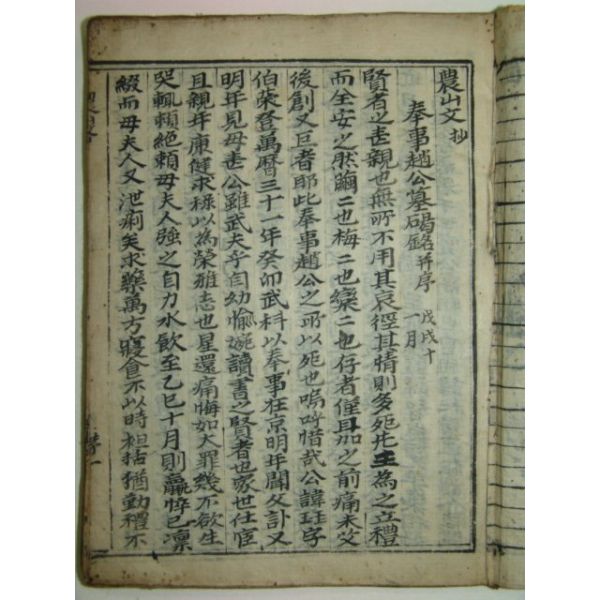 農山文抄
奉事趙公墓碣銘并序 戊戌十一月
賢者之喪親也無所不用其哀徑其情則多死先王為之立禮
而全安之然繭二也梅二也欒二也存者僅耳加之前痛未艾
後創又巨者耶此奉事趙公之所以死也嗚呼惜哉公諱珪字
伯榮登萬曆三十一年癸卯武科以奉事在京明年聞父訃又
明年見母喪公雖武夫乎自幼愉婉讀書之賢者也家世仕宦
且親年康健求祿以為榮雅志也星還痛悔如大罪幾不欲生
哭輒賴絶賴母夫人強之自力水飲至乙巳十月則羸悴已凜
綴而母夫人又泄痢矣求藥萬方寢食不以時袒括猶動禮不